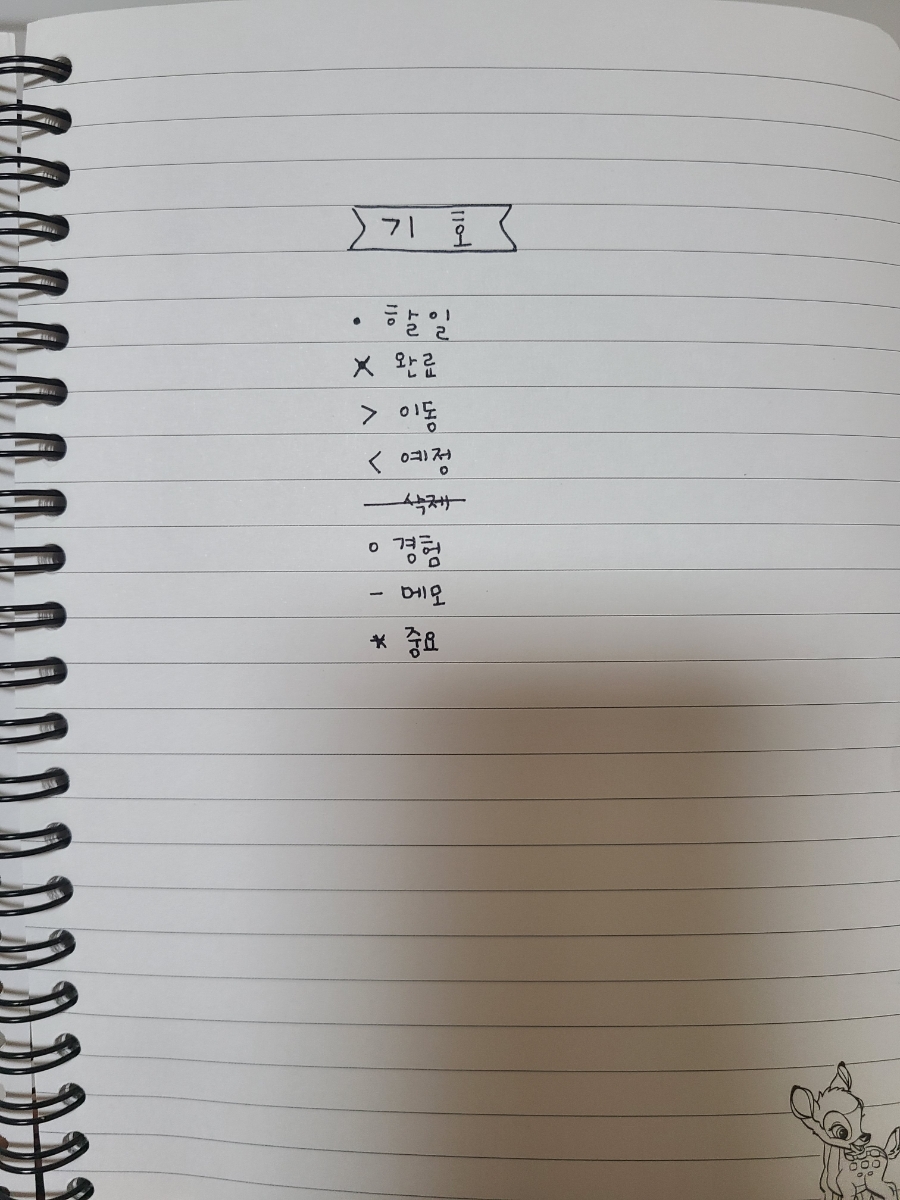 기 호
• 할 일
× 완료
> 이동
< 예정
삭제
o 경험
- 메모
* 중요